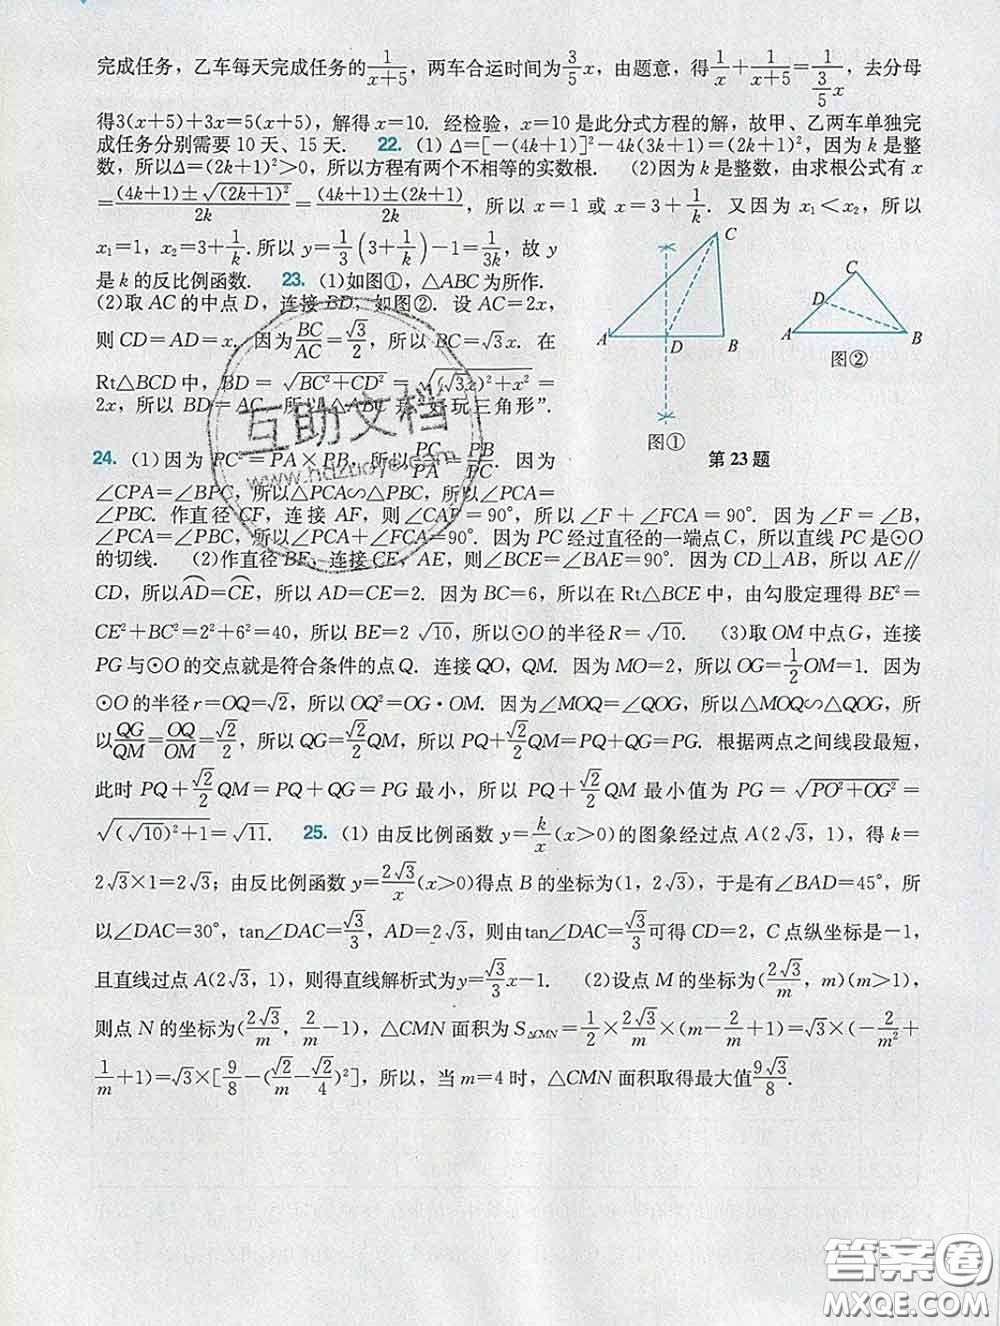 完成任务，乙车每天完成任务的1/(x+5)，两车合运时间为3/5 x，由题意，得1/x+1/(x+5)=1/(3/5 x)，去分母
得3(x+5)+3x=5(x+5)，解得x=10. 经检验，x=10是此分式方程的解，故甲、乙两车单独完
成任务分别需要10天、15天. 22. (1) Δ=[-(4k+1)]²-4k(3k+1)=(2k+1)²，因为k是整
数，所以Δ=(2k+1)²>0，所以方程有两个不相等的实数根. (2)因为k是整数，由求根公式有x
=((4k+1)±√(2k+1)²)/2k=((4k+1)±(2k+1))/2k，所以x=1或x=3+1/k. 又因为x₁<x₂，所以
x₁=1，x₂=3+1/k. 所以y=1/3(3+1/k)-1=1/3k，故y
是k的反比例函数. 23. (1)如图①，△ABC为所作.
(2)取AC的中点D，连接BD，如图②. 设AC=2x，
则CD=AD=x. 因为BC/AC=√3/2，所以BC=√3x. 在
Rt△BCD中，BD=√(BC²+CD²)=√((√3x)²+x²)=
2x，所以BD=AC，所以△ABC是“好玩三角形”.
C
A
D
B
图①
C
D
A
B
图②
第23题
24. (1)因为PC²=PA×PB，所以PC/PA=PB/PC. 因为
∠CPA=∠BPC，所以△PCA∽△PBC，所以∠PCA=
∠PBC. 作直径CF，连接AF，则∠CAF=90°，所以∠F+∠FCA=90°. 因为∠F=∠B，
∠PCA=∠PBC，所以∠PCA+∠FCA=90°. 因为PC经过直径的一端点C，所以直线PC是⊙O
的切线. (2)作直径BE，连接CE，AE，则∠BCE=∠BAE=90°. 因为CD⊥AB，所以AE∥
CD，所以⌒AD=⌒CE，所以AD=CE=2. 因为BC=6，所以在Rt△BCE中，由勾股定理得BE²=
CE²+BC²=2²+6²=40，所以BE=2√10，所以⊙O的半径R=√10. (3)取OM中点G，连接
PG与⊙O的交点就是符合条件的点Q. 连接QO，QM. 因为MO=2，所以OG=1/2 OM=1. 因为
⊙O的半径r=OQ=√2，所以OQ²=OG·OM. 因为∠MOQ=∠QOG，所以△MOQ∽△QOG，所
以QG/QM=OQ/OM=√2/2，所以QG=√2/2 QM，所以PQ+√2/2 QM=PQ+QG=PG. 根据两点之间线段最短，
此时PQ+√2/2 QM=PQ+QG=PG最小，所以PQ+√2/2 QM最小值为PG=√(PO²+OG²)=
√((√10)²+1)=√11. 25. (1)由反比例函数y=k/x(x>0)的图象经过点A(2√3，1)，得k=
2√3×1=2√3；由反比例函数y=2√3/x(x>0)得点B的坐标为(1，2√3)，于是有∠BAD=45°，所
以∠DAC=30°，tan∠DAC=√3/3，AD=2√3，则由tan∠DAC=√3/3可得CD=2，C点纵坐标是-1，
且直线过点A(2√3，1)，则得直线解析式为y=√3/3 x-1. (2)设点M的坐标为(2√3/m，m)(m>1)，
则点N的坐标为(2√3/m，2/m-1)，△CMN面积为S△CMN=1/2×2√3/m×(m-2/m+1)=√3×(-2/m²+
1/m+1)=√3×[9/8-(√2/m-√2/4)²]，所以，当m=4时，△CMN面积取得最大值9√3/8.
互助文档
www.hdzuoye.com
答案圈
MXQE.COM